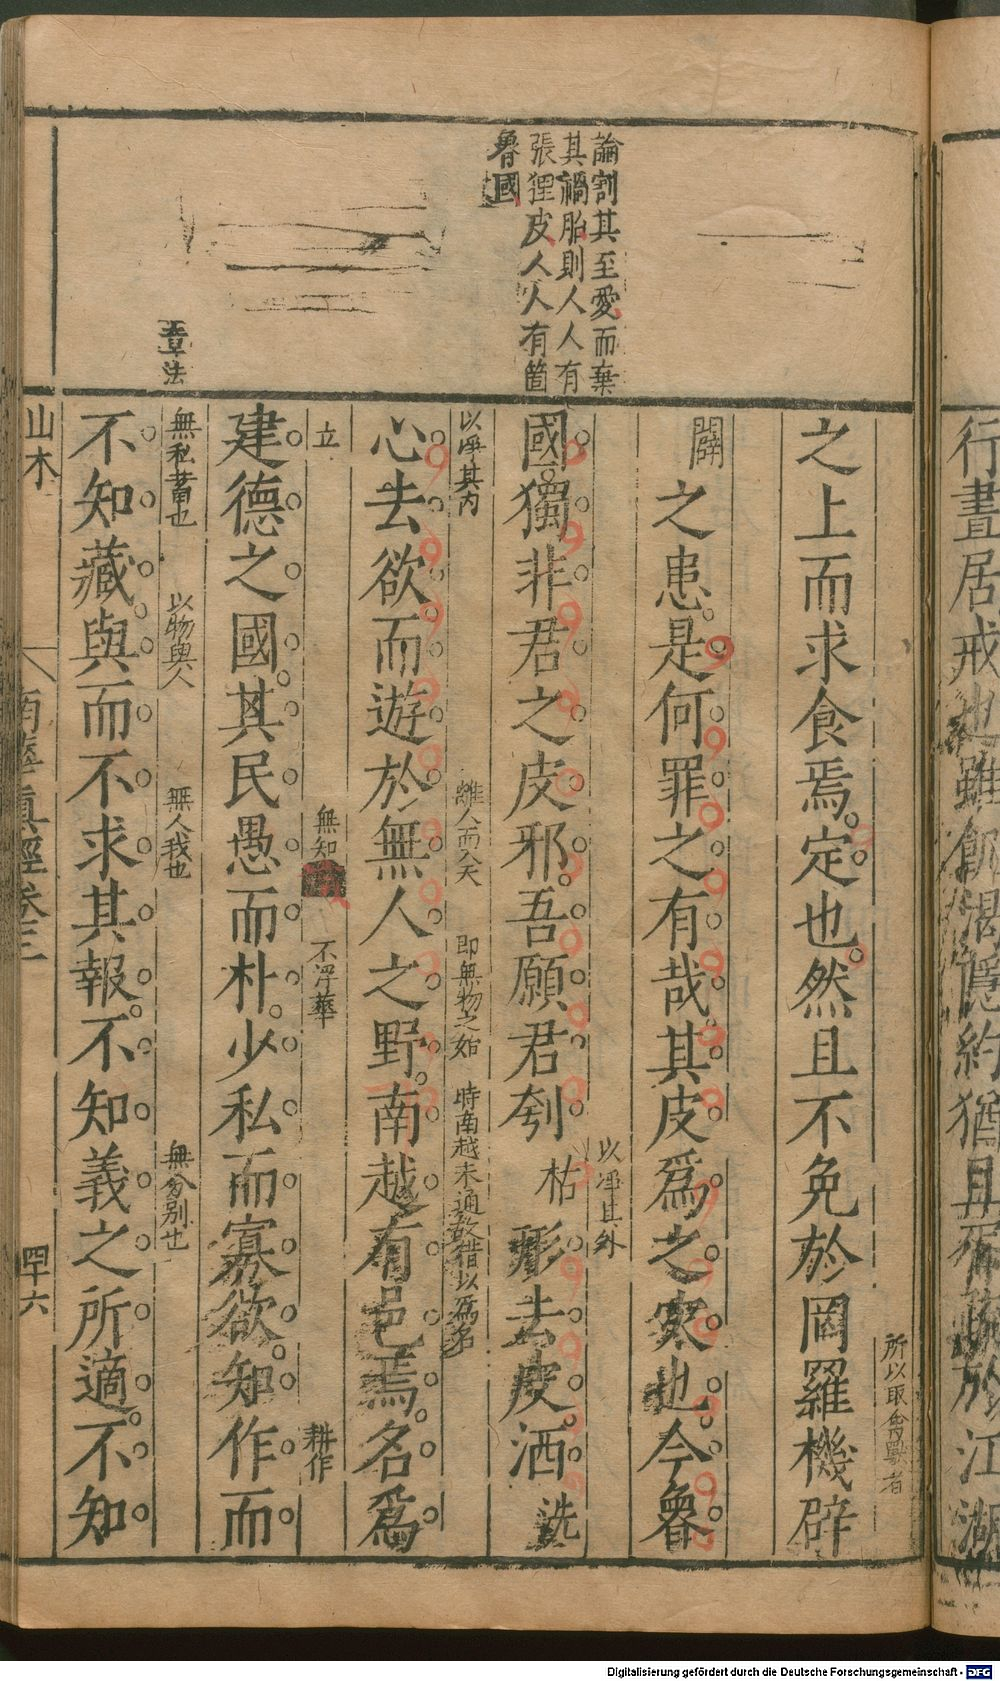 行晝居戒也雖飢渴隱約猶且胥疏於江湖
論割其至愛而棄
其禍胎則人人有
張狸皮人人有箇
魯國
章法
所以取禽獸者
之上而求食焉定也然且不免於罔羅機辟
闢之患是何罪之有哉其皮爲之災也今魯
以淨其外
國獨非君之皮邪吾願君刳枯形去皮洒洗
以淨其內 離人而入天 即無物之始 時南越未通故借以爲名
心去欲而遊於無人之野南越有邑焉名爲
立 無知 不浮華 耕作
建德之國其民愚而朴少私而寡欲知作而
無私畜也 以物與人 無人我也 無分別也
不知藏與而不求其報不知義之所適不知
山木 南華真經卷三 四十六
Digitalisierung gefördert durch die Deutsche Forschungsgemeinschaft - DFG